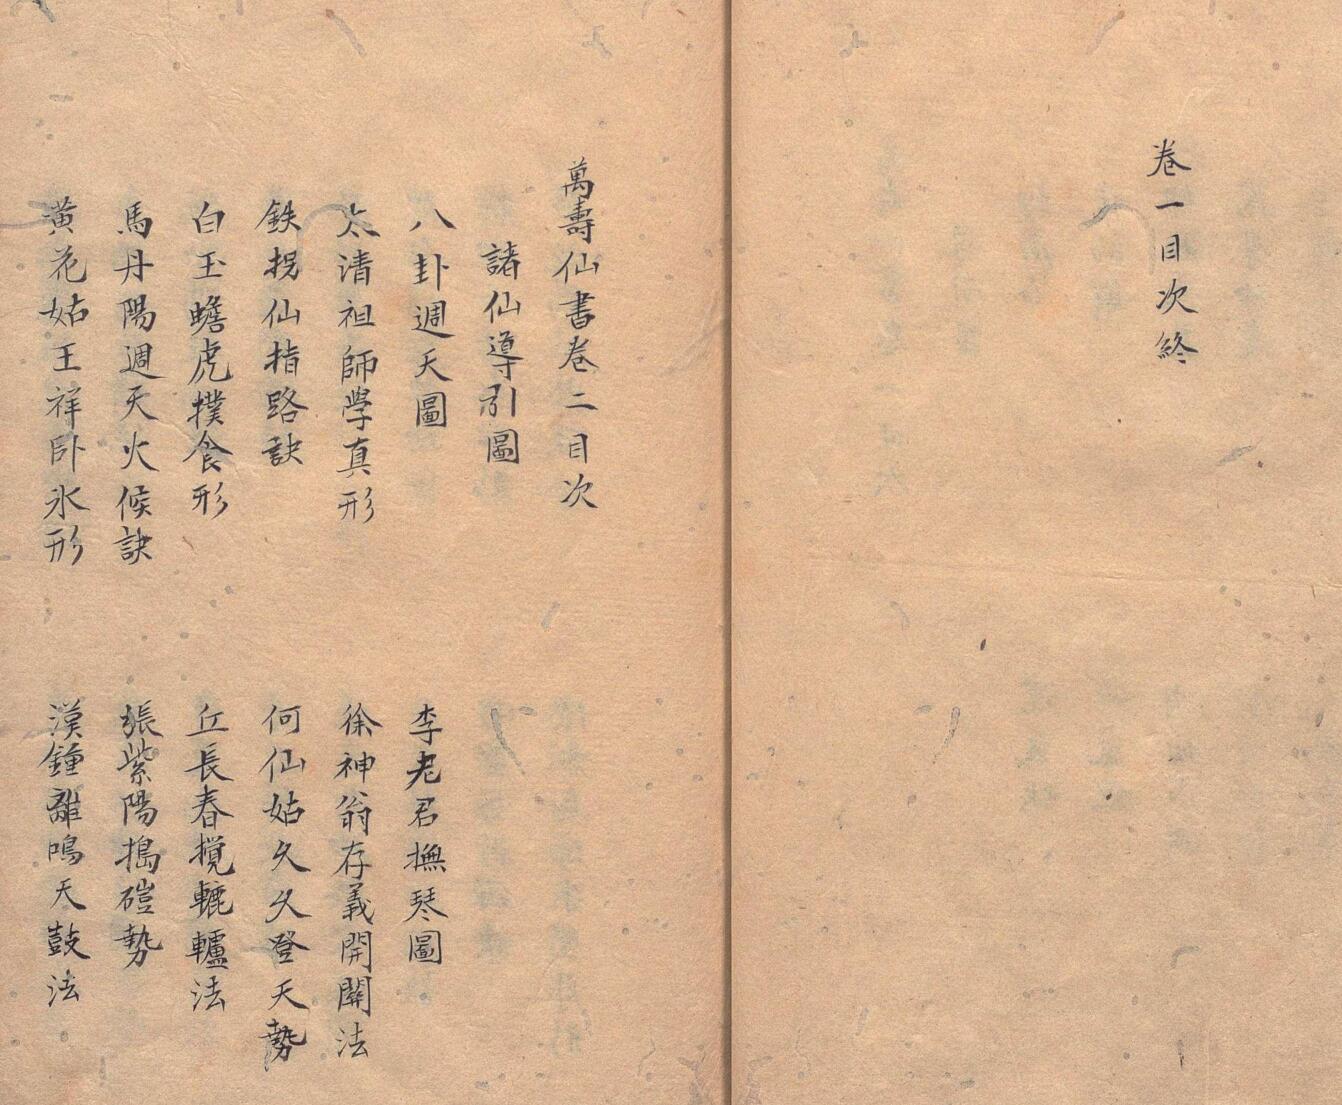 卷一目次終
萬壽仙書卷二目次
諸仙導引圖
八卦週天圖
李老君撫琴圖
太清祖師學真形
徐神翁存義開關法
鉄拐仙指路訣
何仙姑久久登天勢
白玉蟾虎撲食形
丘長春攪轆轤法
馬丹陽週天火候訣
張紫陽搗磑勢
黃花姑王祥卧氷形
漢鍾離鳴天鼓法